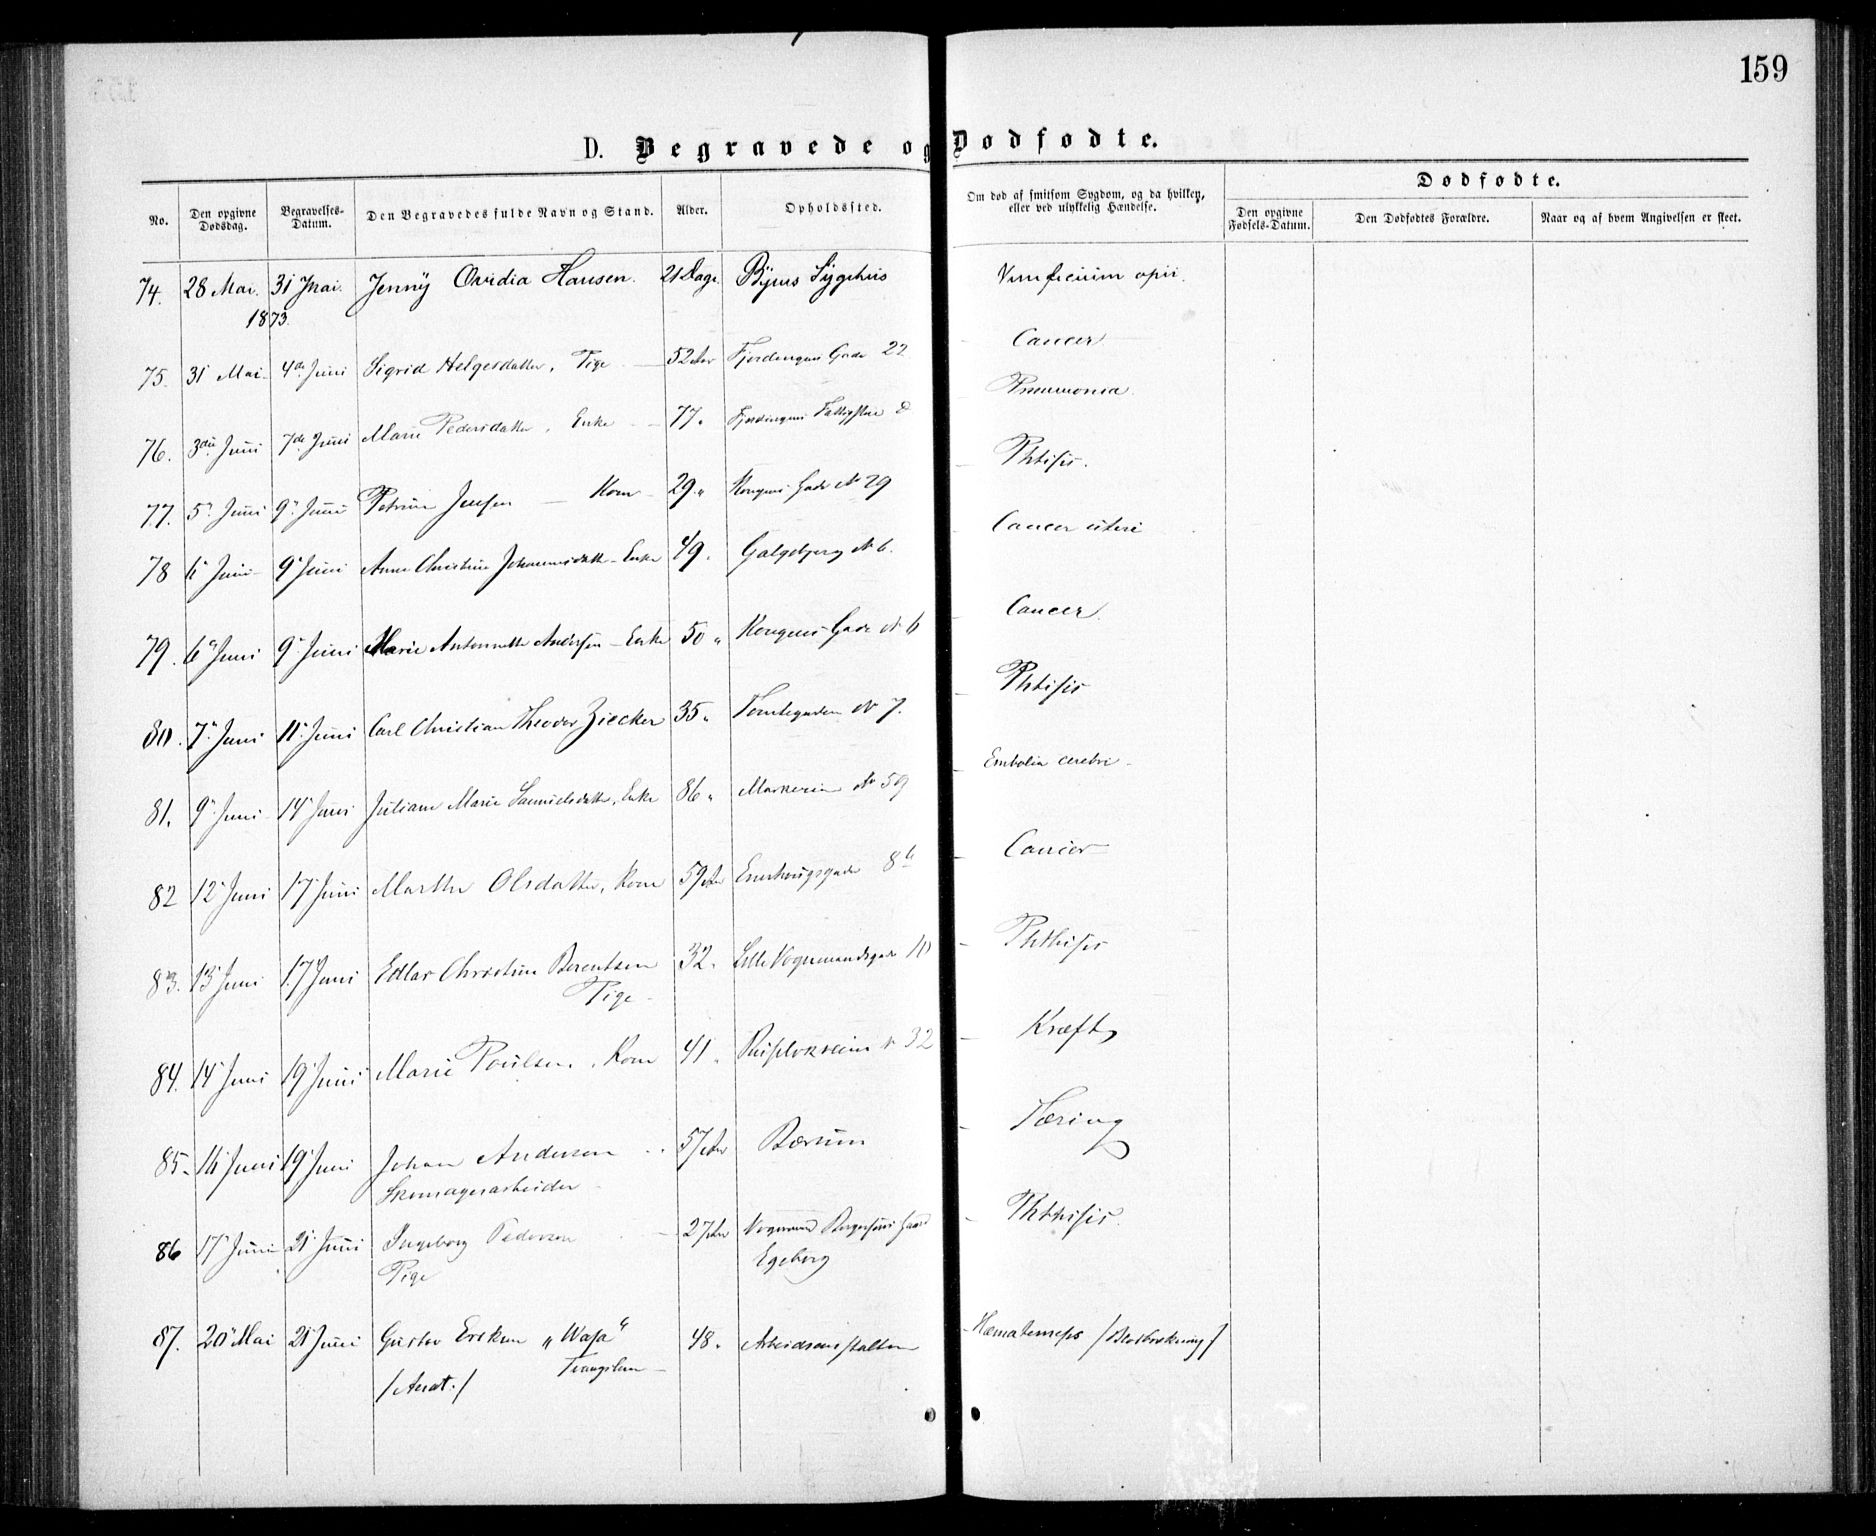 159
D. Begravede og Dødfødte.
No. Den opgivne Dødsdag. Begravelses-Datum. Den Begravedes fulde Navn og Stand. Alder. Opholdssted. Om død af smitsom Sygdom, og da hvilken, eller ved ulykkelig Hændelse. Dødfødte.
Den opgivne Fødsels-Datum. Den Dødfødtes Forældre. Naar og af hvem Angivelsen er skeet.
74. 28 Mai. 31 Mai. Jenny Ovidia Hansen. 21 Dage. Byens Sygehus opii.
1873.
75. 31 Mai 4de Juni Sigrid Helgesdatter, Pige 52 Aar Fjerdingens Gade 22 Cancer
76. 3die Juni 7de Juni Marie Pedersdatter, Enke 77 " Pneumonia.
77. 5" Juni 9" Juni Petrine Jensen — Kone 29 " Kongens Gade No 29 Phtisis.
78 6" Juni 9" Juni Anne Christine Johannesdatter Enke 49. Galgebjerg No 6. Cancer uteri
79. 6" Juni 9" Juni Marie Antonnette Andersen Enke 50 " Kongens Gade No 6 Cancer.
80. 7" Juni 11" Juni Carl Christian Theodor Ziecker 35 " Tomtegaden No 7. Phtisis
81. 9" Juni 14" Juni Juliane Marie Samuelsdatter, Enke 86 " Markveien No 59 Embolia cerebri
82 12" Juni 17" Juni Marthe Olsdatter, Kone 59 Aar Enerhougsgade 8 b Cancer
83. 13" Juni 17" Juni Christine Berentsen 32. Lille Vognmandsgade 10 Phthisis
Pige
84. 14" Juni 19" Juni Marie Poulsen. Kone 41. Ruseløkveien No 32 Kræft
85. 16 Juni 19" Juni Johan Andersen 57 Aar Bærum Tæring
Skomagerarbeider
86 17" Juni 21" Juni Ingeborg Pedersen 27 Aar Vognmand Gaard Phthisis.
Pige Egeberg
87. 20" Mai 21" Juni Gustav Ersken „Wasa“ 48. Arbeidsanstalten Hæmatemesis / Blodbrækning /
Tvangslem
/ Anat. /